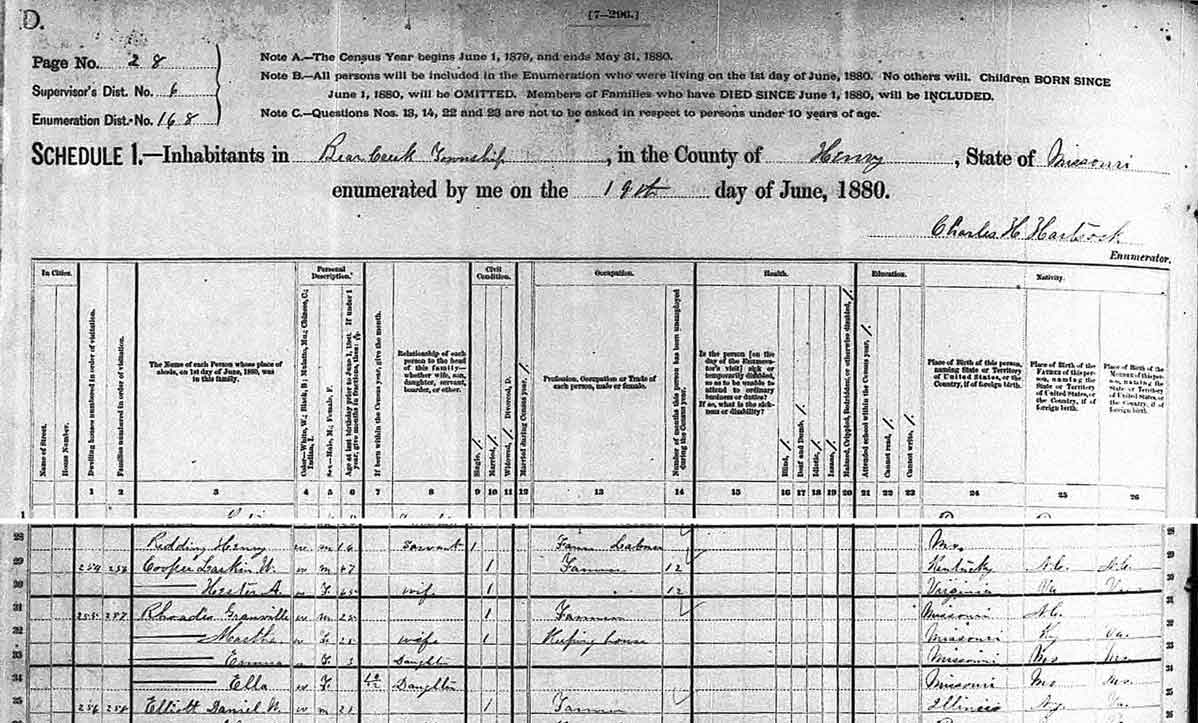 D.
[7-296.]
Page No. 28
Supervisor's Dist. No. 6
Enumeration Dist. No. 168
Note A.—The Census Year begins June 1, 1879, and ends May 31, 1880.
Note B.—All persons will be included in the Enumeration who were living on the 1st day of June, 1880. No others will. Children BORN SINCE
June 1, 1880, will be OMITTED. Members of Families who have DIED SINCE June 1, 1880, will be INCLUDED.
Note C.—Questions Nos. 13, 14, 22 and 23 are not to be asked in respect to persons under 10 years of age.
SCHEDULE 1.—Inhabitants in Bear Creek Township, in the County of Henry, State of Missouri
enumerated by me on the 19th day of June, 1880.
Charles H. Hartsock
Enumerator.
In Cities. Personal Description. Civil Condition. Occupation. Health. Education. Nativity.
Name of Street.
House Number.
Dwelling houses numbered in order of visitation.
Families numbered in order of visitation.
The Name of each Person whose place of abode, on 1st day of June, 1880, was in this family.
Color—White, W.; Black, B.; Mulatto, Mu.; Chinese, C.; Indian, I.
Sex—Male, M.; Female, F.
Age at last birthday prior to June 1, 1880. If under 1 year, give months in fractions, thus:
If born within the Census year, give the month.
Relationship of each person to the head of this family—whether wife, son, daughter, servant, boarder, or other.
Single, /.
Married, /.
Widowed, /. Divorced, D.
Married during Census year, /.
Profession, Occupation or Trade of each person, male or female.
Number of months this person has been unemployed during the Census year.
Is the person [on the day of the Enumerator's visit] sick or temporarily disabled, so as to be unable to attend to ordinary business or duties? If so, what is the sickness or disability?
Blind, /.
Deaf and Dumb, /.
Idiotic, /.
Insane, /.
Maimed, Crippled, Bedridden, or otherwise disabled, /.
Attended school within the Census year, /.
Cannot read, /.
Cannot write, /.
Place of Birth of this person, naming State or Territory of United States, or the Country, if of foreign birth.
Place of Birth of the Father of this person, naming the State or Territory of United States, or the Country, if of foreign birth.
Place of Birth of the Mother of this person, naming the State or Territory of United States, or the Country, if of foreign birth.
1 2 3 4 5 6 7 8 9 10 11 12 13 14 15 16 17 18 19 20 21 22 23 24 25 26
1
28 Ridding Henry w m 16 Servant 1 Farm Laborer Mo. 28
29 254 256 Cooper Larkin W. w m 47 1 Farmer 12 Kentucky N.C. N.C. 29
30 Hester A. w F 45 wife 1 12 Virginia Va Va 30
31 255 257 Rhoades Granville w m 25 1 Farmer Missouri N.C. 31
32 Martha w F 25 wife 1 Keeping house Missouri Ky Va. 32
33 Emma w F 3 Daughter Missouri Mo Mo 33
34 Ella w F Daughter Missouri Mo Mo. 34
35 256 258 Elliott Daniel W. w m 21 Farmer Illinois 35